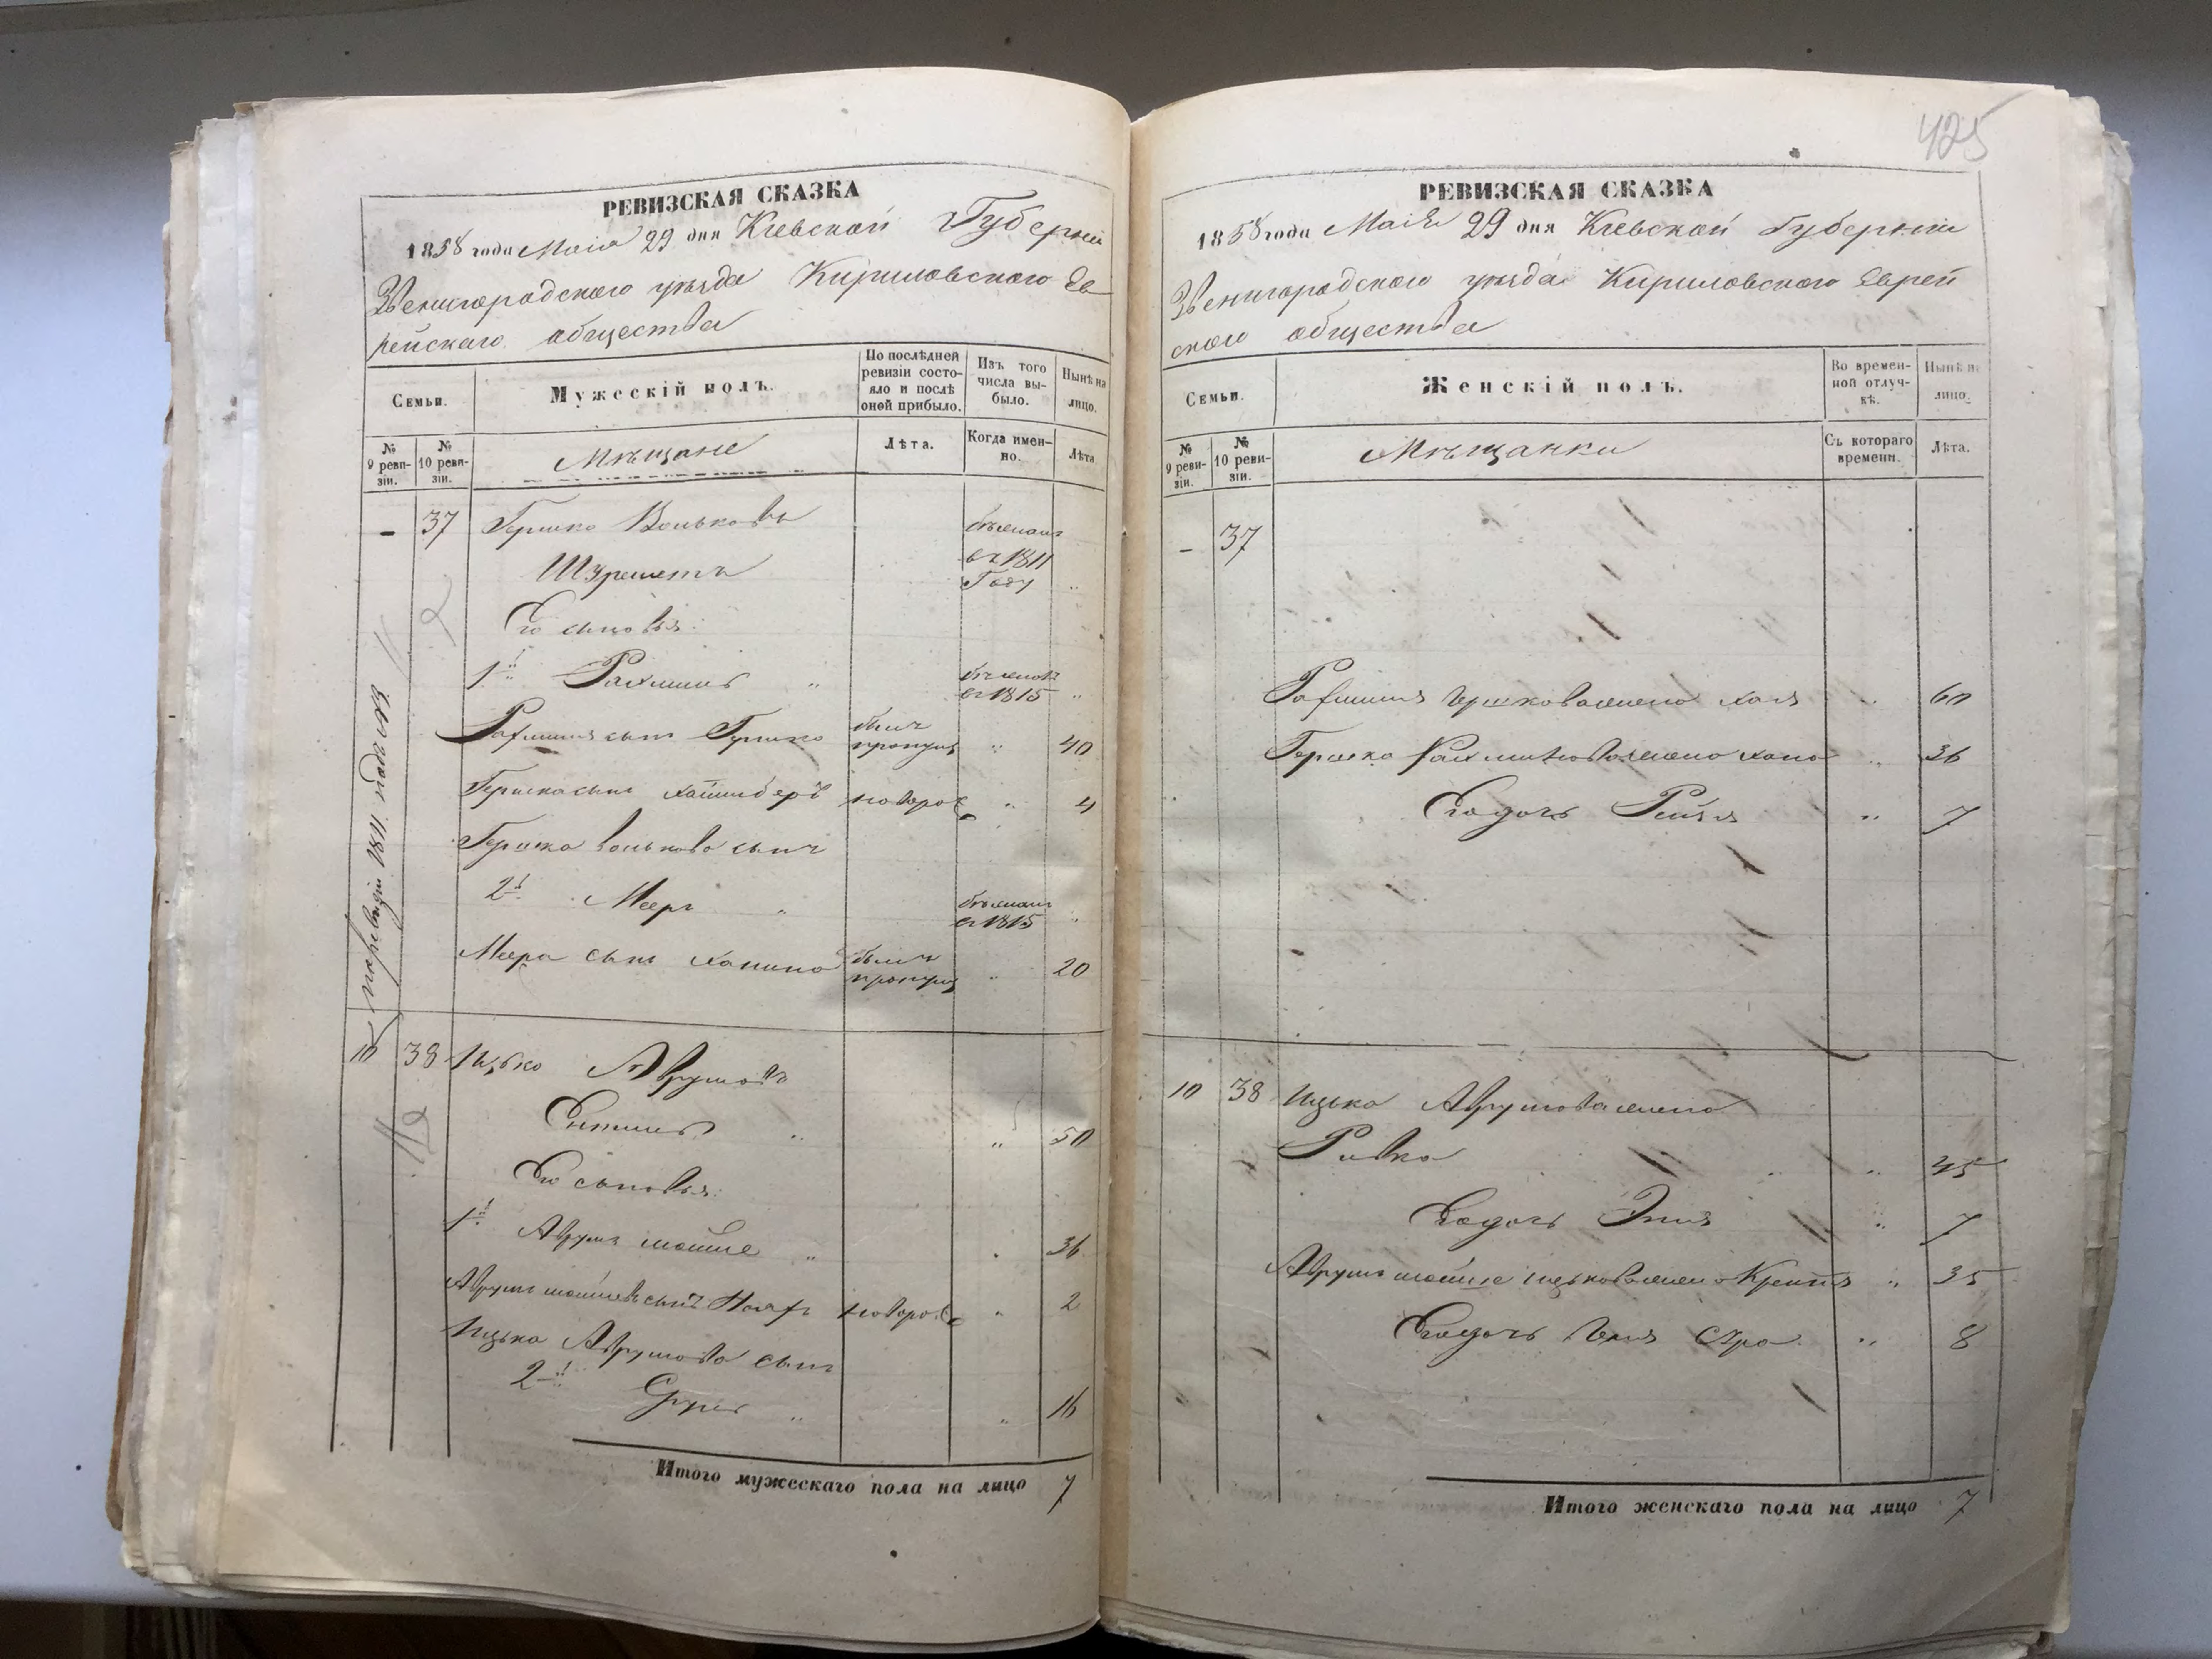 РЕВИЗСКАЯ СКАЗКА
1858 года Маія 29 дня Кіевской Губерніи
Звенигородского уѣзда Кириловского Ев
рейскаго общества
Семьи.
Мужескій полъ.
По послѣдней ревизіи состояло и послѣ оной прибыло.
Изъ того числа выбыло.
Нынѣ на лицо.
№ 9 ревизіи.
№ 10 ревизіи.
Мѣщане
Лѣта.
Когда именно.
Лѣта
- 37 Гершко Вольковъ
въ 1811
Году
Его сыновья:
1й Рахминъ
въ 1815
Рахмина сынъ Гершко былъ пропущ " 40
Гершка сынъ Хаимберъ новорож " 4
Гершка Волькова сынъ
2й Меер "
въ 1815
Меера сынъ Ханина былъ пропущ " 20
по ревизіи 1811 года №
10 38 Ицько Аврумовъ
" 50
Его сыновья:
1й Аврумъ мошие " 36
новорож " 2
Ицька Аврумова сынъ
2й " 16
Итого мужескаго пола на лицо 7
425
РЕВИЗСКАЯ СКАЗКА
1858 года Маія 29 дня Кіевской Губерніи
Звенигородского уѣзда Кириловского Еврей
ского общества
Семьи.
Женскій полъ.
Во временной отлучкѣ.
Нынѣ на лицо.
№ 9 ревизіи.
№ 10 ревизіи.
Мѣщанки
Съ котораго времени.
Лѣта.
- 37
Рахмина Гершкова жена Хая " 60
Гершка Рахминова жена Хана " 36
Его дочь Рейзя " 7
10 38 Ицька Аврумова жена
Ривка " 45
Его дочь Эня " 7
Аврумъ мошие ицькова жена Крейня " 35
Его дочь Геня Сура " 8
Итого женскаго пола на лицо 7